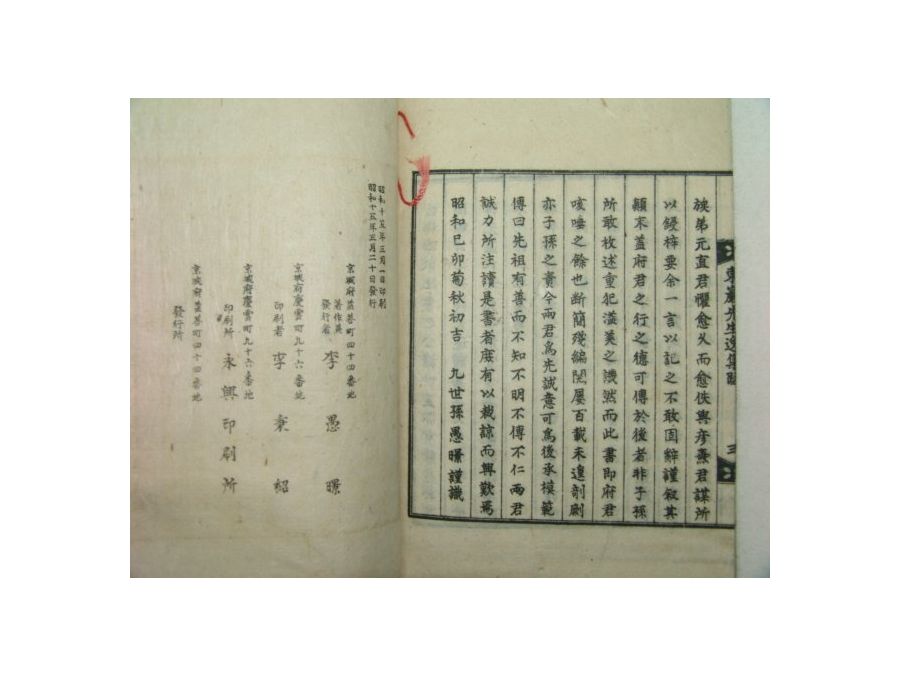 東巖先生逸集跋
三
族弟元直君懼愈久而愈佚與彦熹君謀所
以鋟梓要余一言以記之不敢固辭謹叙其
顚末盖府君之行之德可傳於後者非子孫
所敢枚述重犯溢美之譏然而此書即府君
咳唾之餘也断簡殘編閱屢百載未遑剞劂
亦子孫之責今兩君爲先誠意可爲後承模範
傳曰先祖有善而不知不明不傳不仁兩君
誠力所注讀是書者庶有以裁諒而興歎焉
昭和己卯菊秋初吉 九世孫愚㬇謹識
昭和十五年三月一日印刷
昭和十五年三月二十日發行
京城府益善町四十四番地
著作兼發行者 李愚㬇
京城府慶雲町九十六番地
印刷者 李秉紹
京城府慶雲町九十六番地
印刷所 永興印刷所
京城府益善町四十四番地
發行所